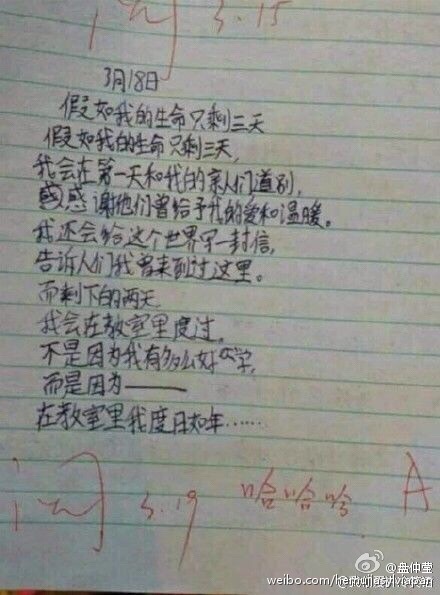 阅 3.15
3月18日
假如我的生命只剩三天
假如我的生命只剩三天,
我会在第一天和我的亲人们道别,
感谢他们曾给予我的爱和温暖。
我还会给这个世界写一封信,
告诉人们我曾来到过这里。
而剩下的两天
我会在教室里度过,
不是因为我有多么好学,
而是因为——
在教室里我度日如年……
阅 3.19 哈哈哈 A
@盘仲莹